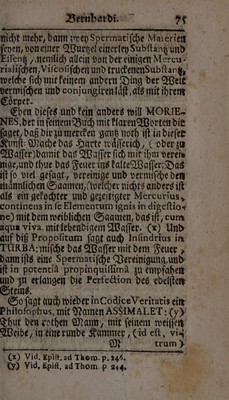 Bernhardi. 75
nicht mehr, dann zwey Spermatische Materien
seyen, von einer Wurtzel einerley Substantz und
Essentz, nemlich allein von der einigen Mercu-
rialischen, Viscosischen und truckenen Substantz,
welche sich mit keinem andern Ding der Welt
vermischen und conjungiren läst, als mit ihrem
Cörper.
Eben dieses und kein anders will MORIE-
NES, der in seinem Buch mit klaren Worten die
saget, daß dir zu mercken gantz noth ist in dieser
Kunst: Mache das Harte wässerich, (oder zu
Wasser) damit das Wasser sich mit ihm verei-
nige, und thue das Feuer ins kalte Wasser: Das
ist so viel gesagt, vereinige und vermische den
männlichen Saamen, (welcher nichts anders ist
als ein gekochter und gezeitigter Mercurius,
continens in se Elementum ignis in digestio-
ne) mit dem weiblichen Saamen, das ist, cum
aqua viva, mit lebendigem Wasser. (x) Und
auf diß Propositum sagt auch Inlindrius in
TURBA: mische das Wasser mit dem Feuer,
dann ists eine Spermatische Vereinigung, und
ist in potentiâ propinquissimâ zu empfahen
und zu erlangen die Perfection des edelsten
Steins.
So sagt auch wieder in Codice Veritatis ein
Philosophus, mit Namen ASSIMALET: (y)
Thut den rothen Mann, mit seinem weissen
Weibe, in eine runde Kammer, (id est, vi-
M trum)
(x) Vid. Epist. ad Thom. p. 246.
(y) Vid. Epist. ad Thom. p. 244.